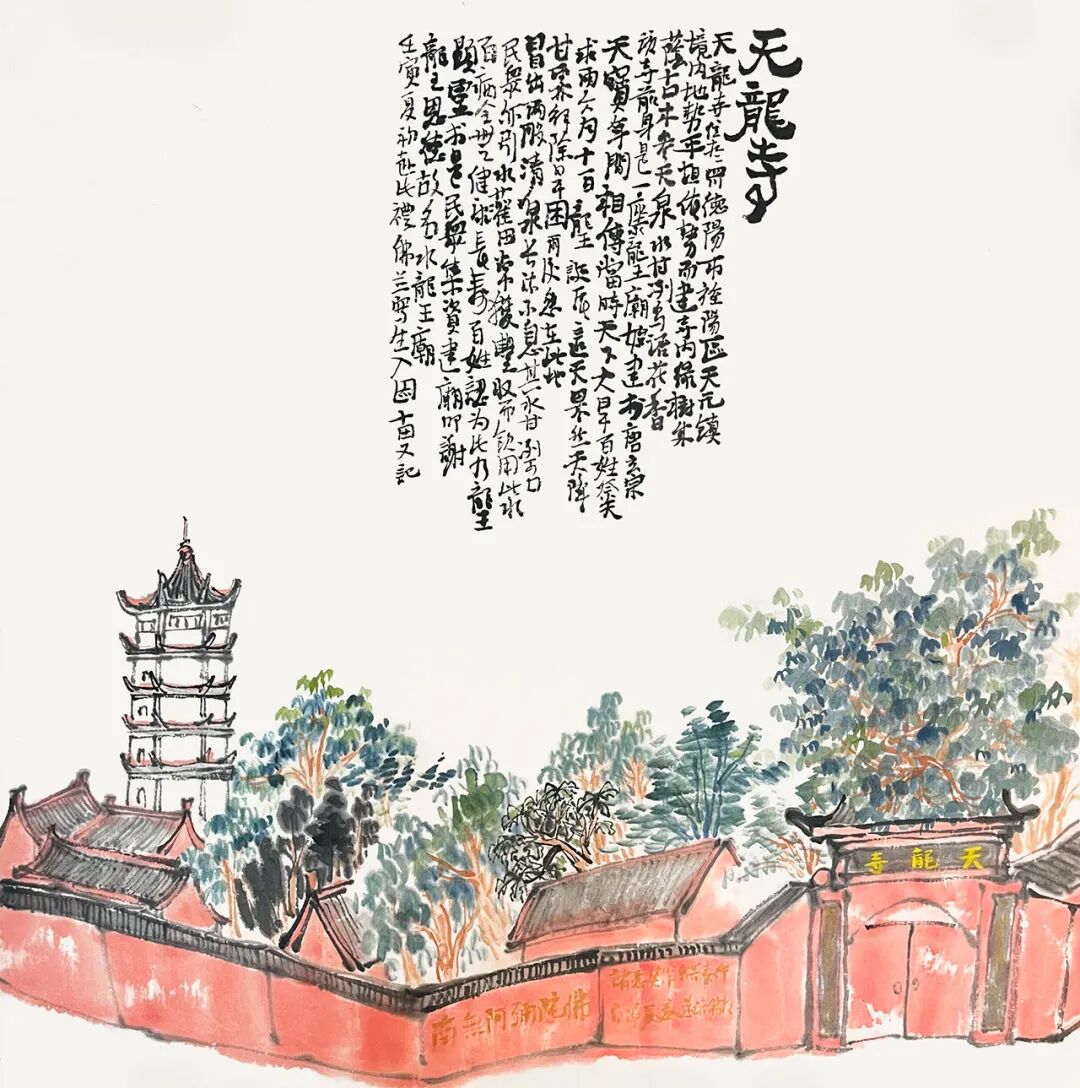 天龍寺
天龍寺位於四川德陽市旌陽區天元鎮
境内地势平坦依势而建寺内绿樹成
蔭古木参天泉水甘冽鸟语花香
該寺前身是一座龍王廟始建於唐玄宗
天寳年間相傳當時天下大旱百姓祭天
求雨六月十一日龍王誕辰這天果然天降
甘霖解除旱困雨後忽在此地
冒出两股清泉长流不息其水甘冽可口
民眾亦引水灌田常獲豐收而飲用此水
百病全無健康長壽百姓認为此乃龍王
顯靈於是民眾集資建廟叩謝
龍王恩德故名水龍王廟
壬寅夏初赴此禮佛并寫生入图十苗又記
天龍寺
南無阿彌陀佛